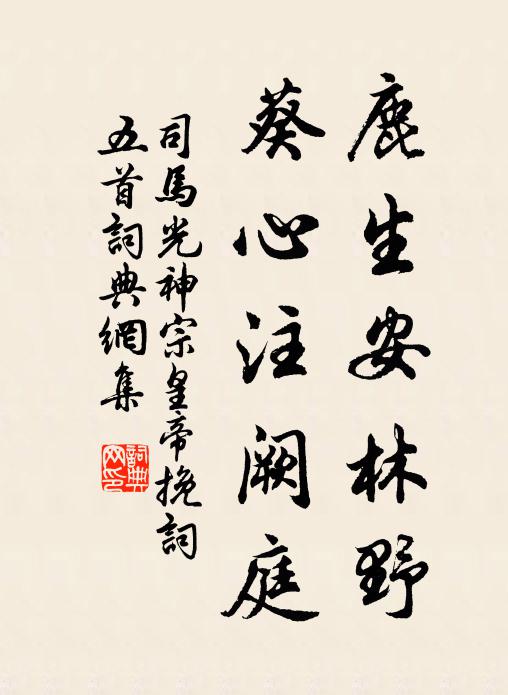 鹿生安林野
葵心注阙庭
司馬光神宗皇帝挽詞
五首詞典網集
詞典网印